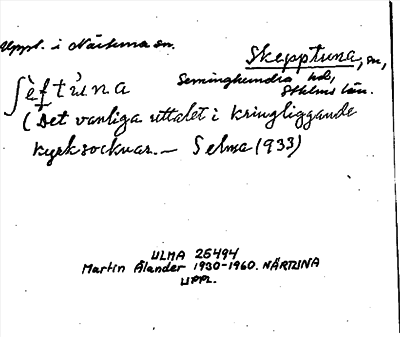 Uppl. i Närtuna sn.
Skepptuna, sn,
Seminghundra hd,
Sthlms län.
ʃὲftủna
(Det vanliga uttalet i kringliggande
kyrksocknar. — Selma (1933)
ULMA 26494
Martin Ålander 1930-1960. NÄRTUNA
UPPL.